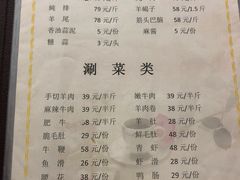 羊排 79元/斤 羊蝎子 58元/1.5斤
羊尾 78元/斤 筋头巴脑 58元/斤
香油蒜泥 5元/份 麻酱 5元/份
糖蒜 3元/头
涮菜类
手切羊肉 39元/半斤 嫩牛肉 39元/半斤
麻辣牛肉 39元/半斤 羊肉卷 38元/半斤
肥牛 38元/半斤 羊肚 28元/份
脆毛肚 29元/份 鲜毛肚 28元/份
牛鞭 58元/份 青虾 48元/份
鱼滑 28元/份 虾滑 28元/份
腰花 鸭肠 29元/份